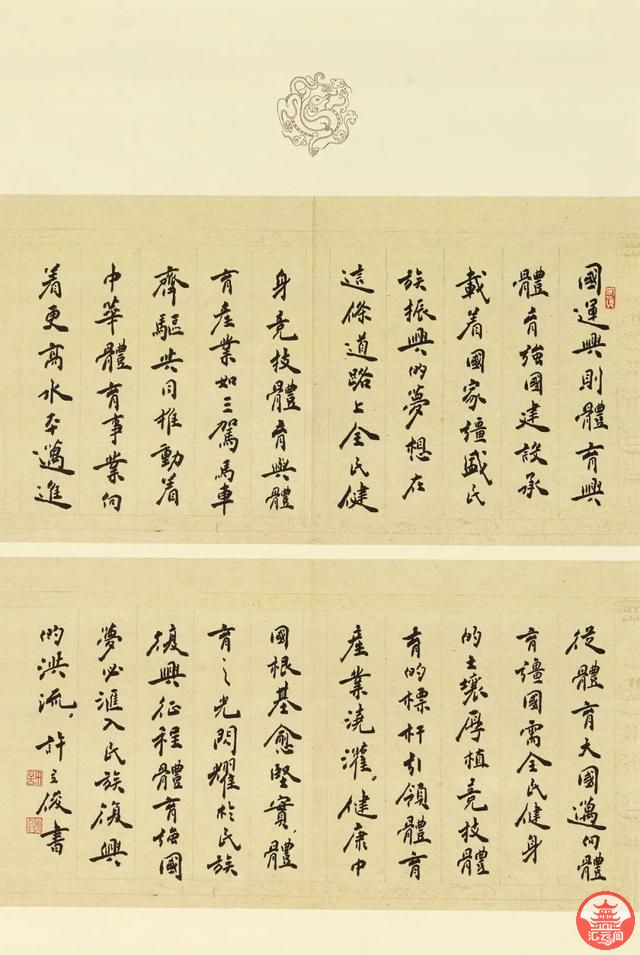 國運興則體育興
體育強國建設承
載着國家彊盛民
族振興的夢想在
這條道路上全民健
身竞技體育與體
育產業如三駕馬車
齊驅共同推動着
中華體育事業向
着更高水平邁進
從體育大國邁向體
育彊國需全民健身
的土壤厚植竞技體
育的標杆引領體育
產業澆灌。健康中
國根基愈堅實,體
育之光閃耀於民族
復興征程體育強國
夢必滙入民族復興
的洪流。許立俊書
汇云阁